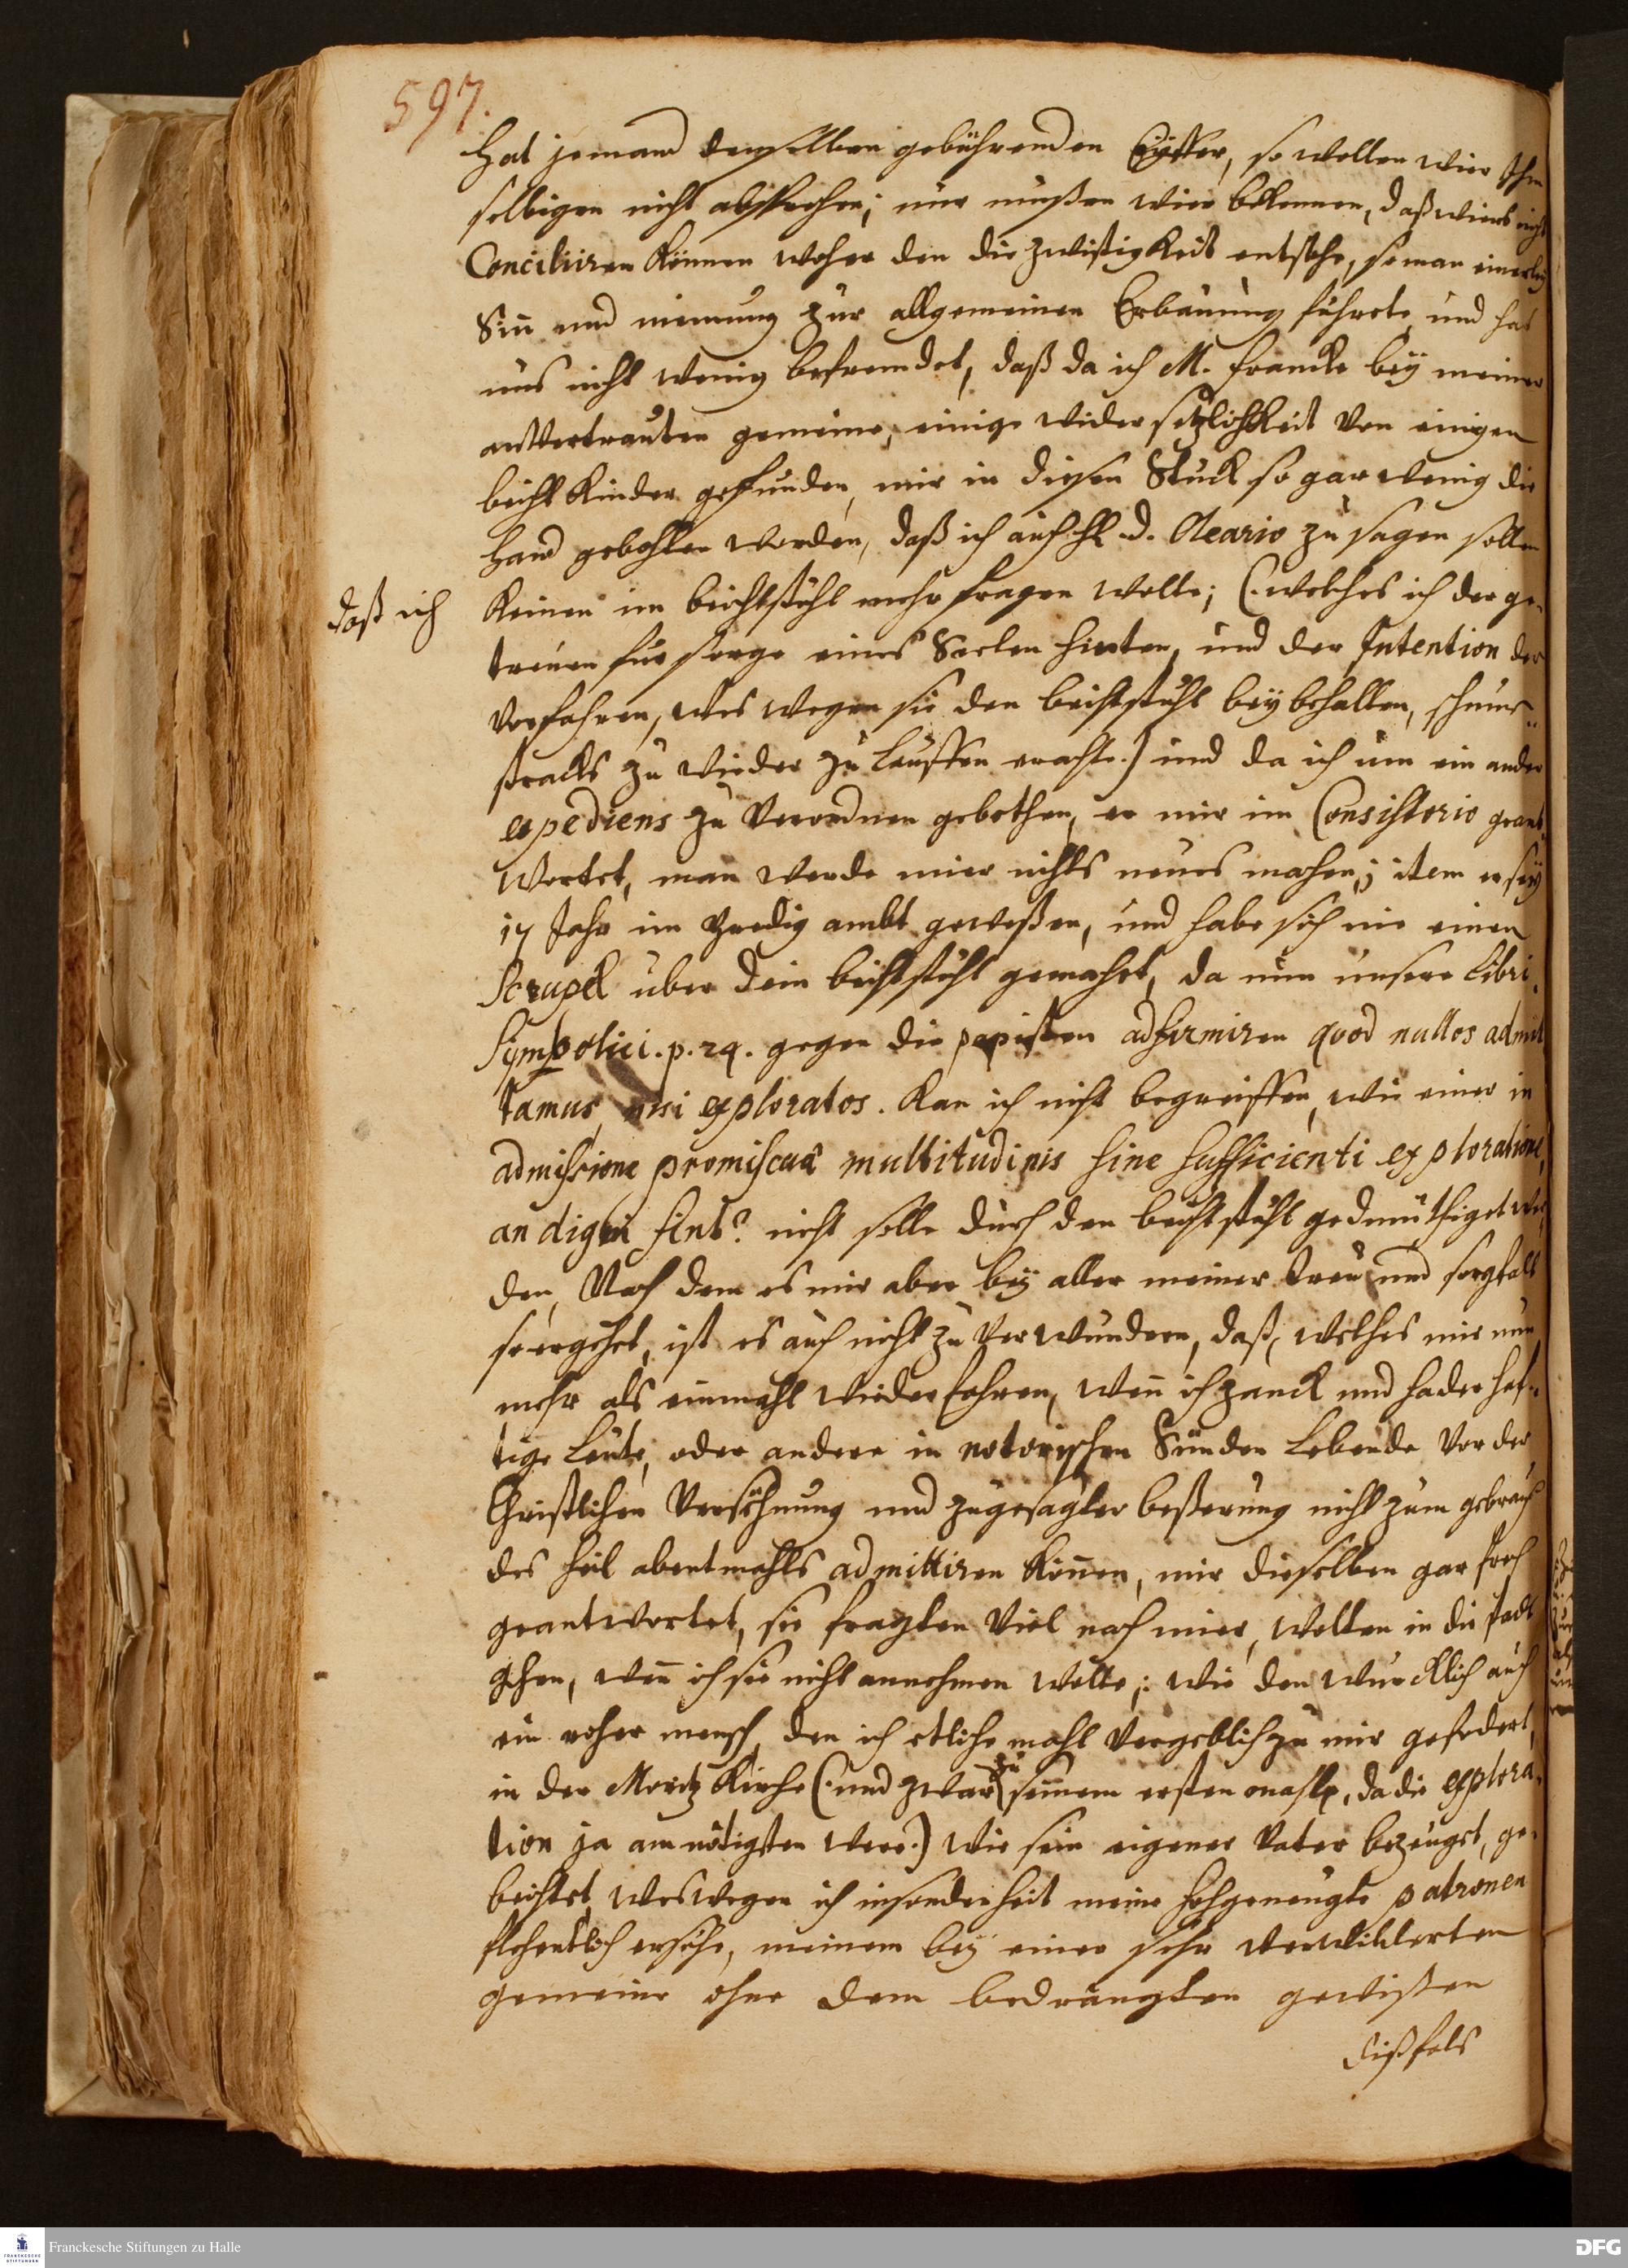 597.
hat jemand denselben gebührenden Eyffer, so wollen wier Ihm
selbigen nicht absprechen; nur müßen wier bekennen, daß wiers nicht
Conciliiren können woher den die zwistigkeit entstehe, so man einerley
Sin̄ und meinung zur allgemeinen Erbauung führete, und hat
uns nicht wenig befremdet, daß da ich M. Francke bey meiner
anvertrauten gemeine, einige widersetzlichkeit von einigen
beicht Kinder gefunden, mir in diesen Stück so gar wenig die
Hand gebohten worden, daß ich auch H. D. Oleario zu sagen sollen
daß ich
keinen im beichtstuhl mehr fragen wolte; (. welches ich der ge-
treuen fursorge eines Seelen hirten, und der Intention der
Vorfahren, weswegen sie den beichtstuhl beybehalten, schnur-
stracks zu wieder zu lauffen erachte.) und da ich um ein ander
expediens zu verordnen gebethen, er mir im Consistorio geant-
wortet, man werde mier nichts neues machen; item er sey
17 Jahr im Predig ambt geweßen, und habe sich nie einen
Scrupel über dem beichtstuhl gemachet, da nun unsere Libri
Symbolici. p. 24. gegen die papisten adfirmiren quod nullos admit
tamus, nisi exploratos. Kan ich nicht begreiffen, wie einer in
admissione promiscuâ multitudinis sine sufficienti exploratione,
an digni sint? nicht solle durch den beichtstuhl gedemüthiget wer
den, Nach dem es mir aber bey aller meiner treu und sorgfalt
so ergehet, ist es auch nicht zu verwundern, daß, welches mir nun
mehr als einmahl wiederfahren, wen̄ ich zanck und hader haf-
tige Leute, oder andere in notorischen Sünden Lebende vor der
Christlichen Versöhnung und zugesagter beßerung nicht zum gebrauch
des heil abentmahls admittiren kön̄en, mir dieselben gar frech
geantwortet, sie fragten viel nach mier, wolten in die stadt
gehen, wen̄ ich sie nicht annehmen wolte; wie den würcklich auch
ein roher mensch, den ich etliche mahl vergeblich zu mir gefodert,
in der Moritz Kirche (. und zwar zu seinem ersten mahle, da die explora-
tion ja am nötigsten were.) wie sein eigener Vater bezeuget, ge-
beichtet, weswegen ich insonderheit meine hochgeneugte patronen
flehentlich ersuche, meinem bey einer sehr verwilderten
gemeine ohne dem bedrängten gewißen
dißfals
Franckesche Stiftungen zu Halle
DFG